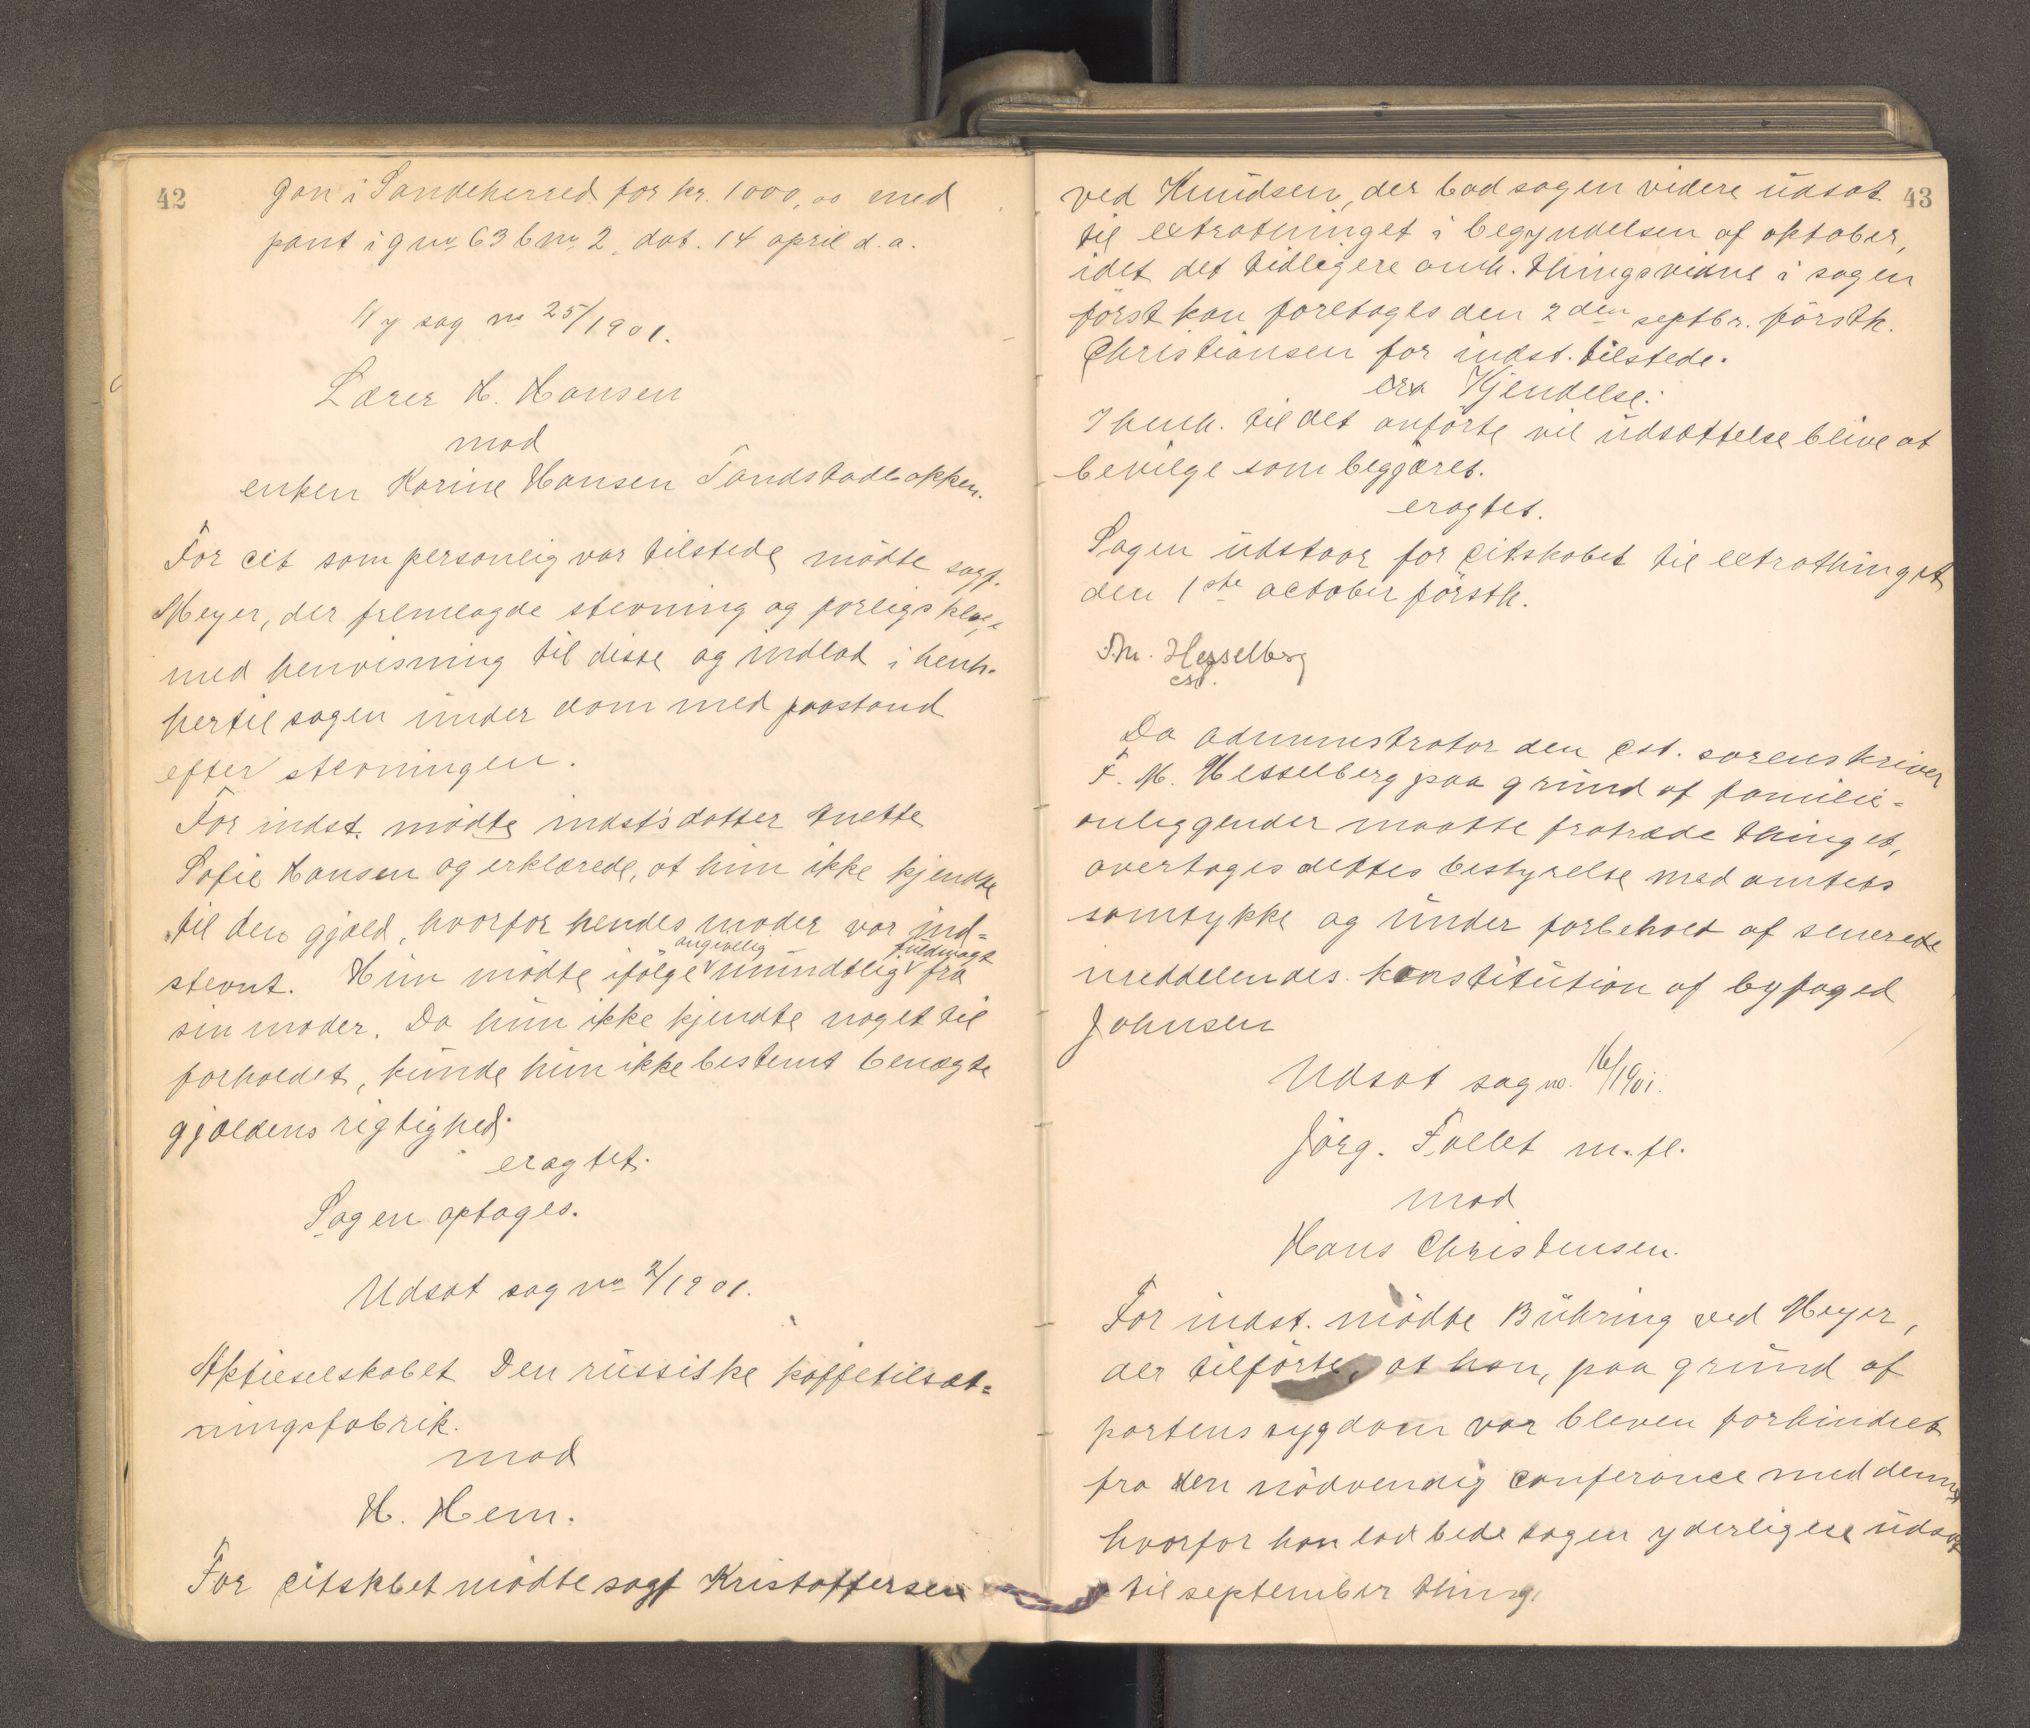 42
gan i Sandeherred for kr. 1000,00 med
pant i gno 63 bno 2, dat. 14 april d. a.
Ny sag no 25/1901.
Lærer H. Hansen
mod
enken Karine Hansen
For cit som personlig var tilstede mødte sagf.
Meyer, der fremlagde stevning og forligsklage,
med henvisning til disse og indlod i henh.
hertil sagen under dom med paastand
efter stevningen.
For indst. mødte indst's datter Anette
Sofie Hansen og erklærede, at hun ikke kjendte
til den gjæld, hvorfor hendes moder var ind-
angivelig fuldmagt
stevnt. Hun mødte ifølge mundtlig fra
sin moder. Da hun ikke kjendte noget til
forholdet, kunde hun ikke bestemt benægte
gjældens rigtighed.
eragtet.
Sagen optages.
Udsat sag no 2/1901.
Aktieselskabet Den russiske kaffetilsæt-
ningsfabrik.
mod
H. Hem.
For citskbet mødte sagf Kristoffersen
43
ved Knudsen, der bad sagen videre udsat
til extrathinget i begyndelsen af oktober,
idet det tidligere omh. thingsvidne i sagen
først kan foretages den 2den septbr. førstk.
Christiansen for indst. tilstede.
Kjendelse:
I henh. til det anførte vil udsættelse blive at
bevilge som begjæret.
eragtet.
Sagen udstaar for citskabet til extrathinget
den 1ste october førstk.
F.M. Hesselberg
cst.
Da administrator den cst. sorenskriver
F. M. Hesselberg paa grund af familie-
anliggender maatte fratræde thinget,
overtages dettes bestyrelse med amtets
samtykke og under forbehold af senerede
meddelendes konstitution af byfoged
Johnsen
Udsat sag no. 16/1901.
Jørg. Follet m. fl.
mod
Hans Christensen.
For indst. mødte Bühring ved Meyer,
der tilførte, at han, paa grund af
partens sygdom var bleven forhindret
fra den nødvendig conferance med denne
hvorfor han lod bede sagen yderligere udsat
til september thing.